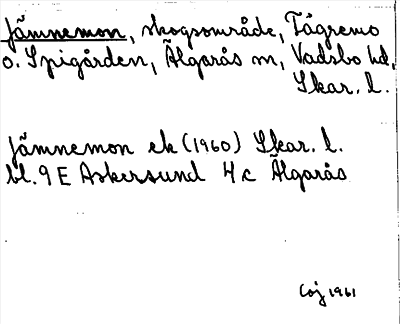 Jämnemon, skogsområde, Tågremo
o. Spigården, Älgarås sn, Vadsbo hd,
Skar. l.
Jämnemon ek (1960) Skar. l.
bl. 9 E Askersund 4 c Älgarås
Coj 1961